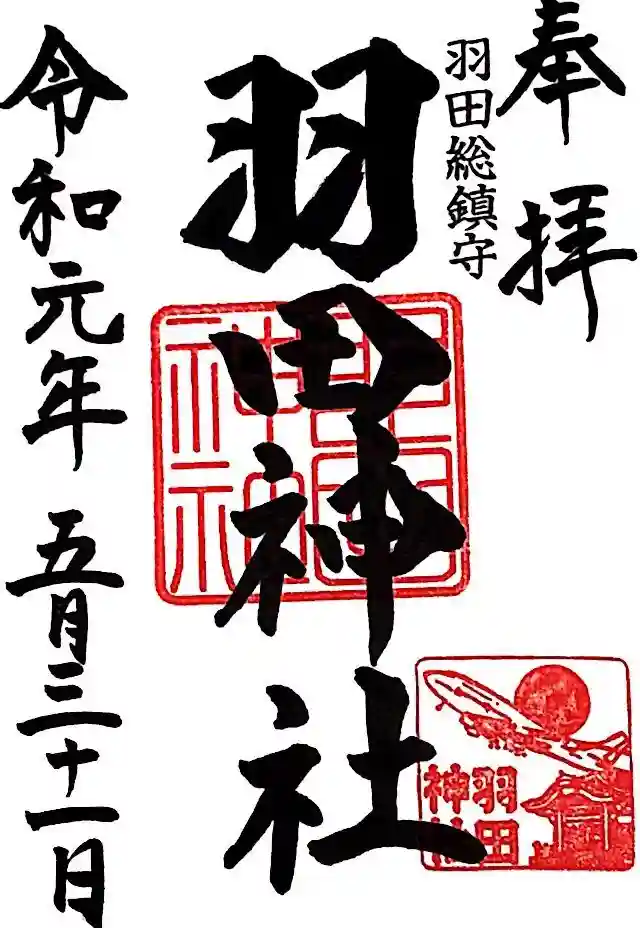 奉拝
羽田総鎮守
羽田神社
羽田
神社
羽田
神社
令和元年 五月三十一日